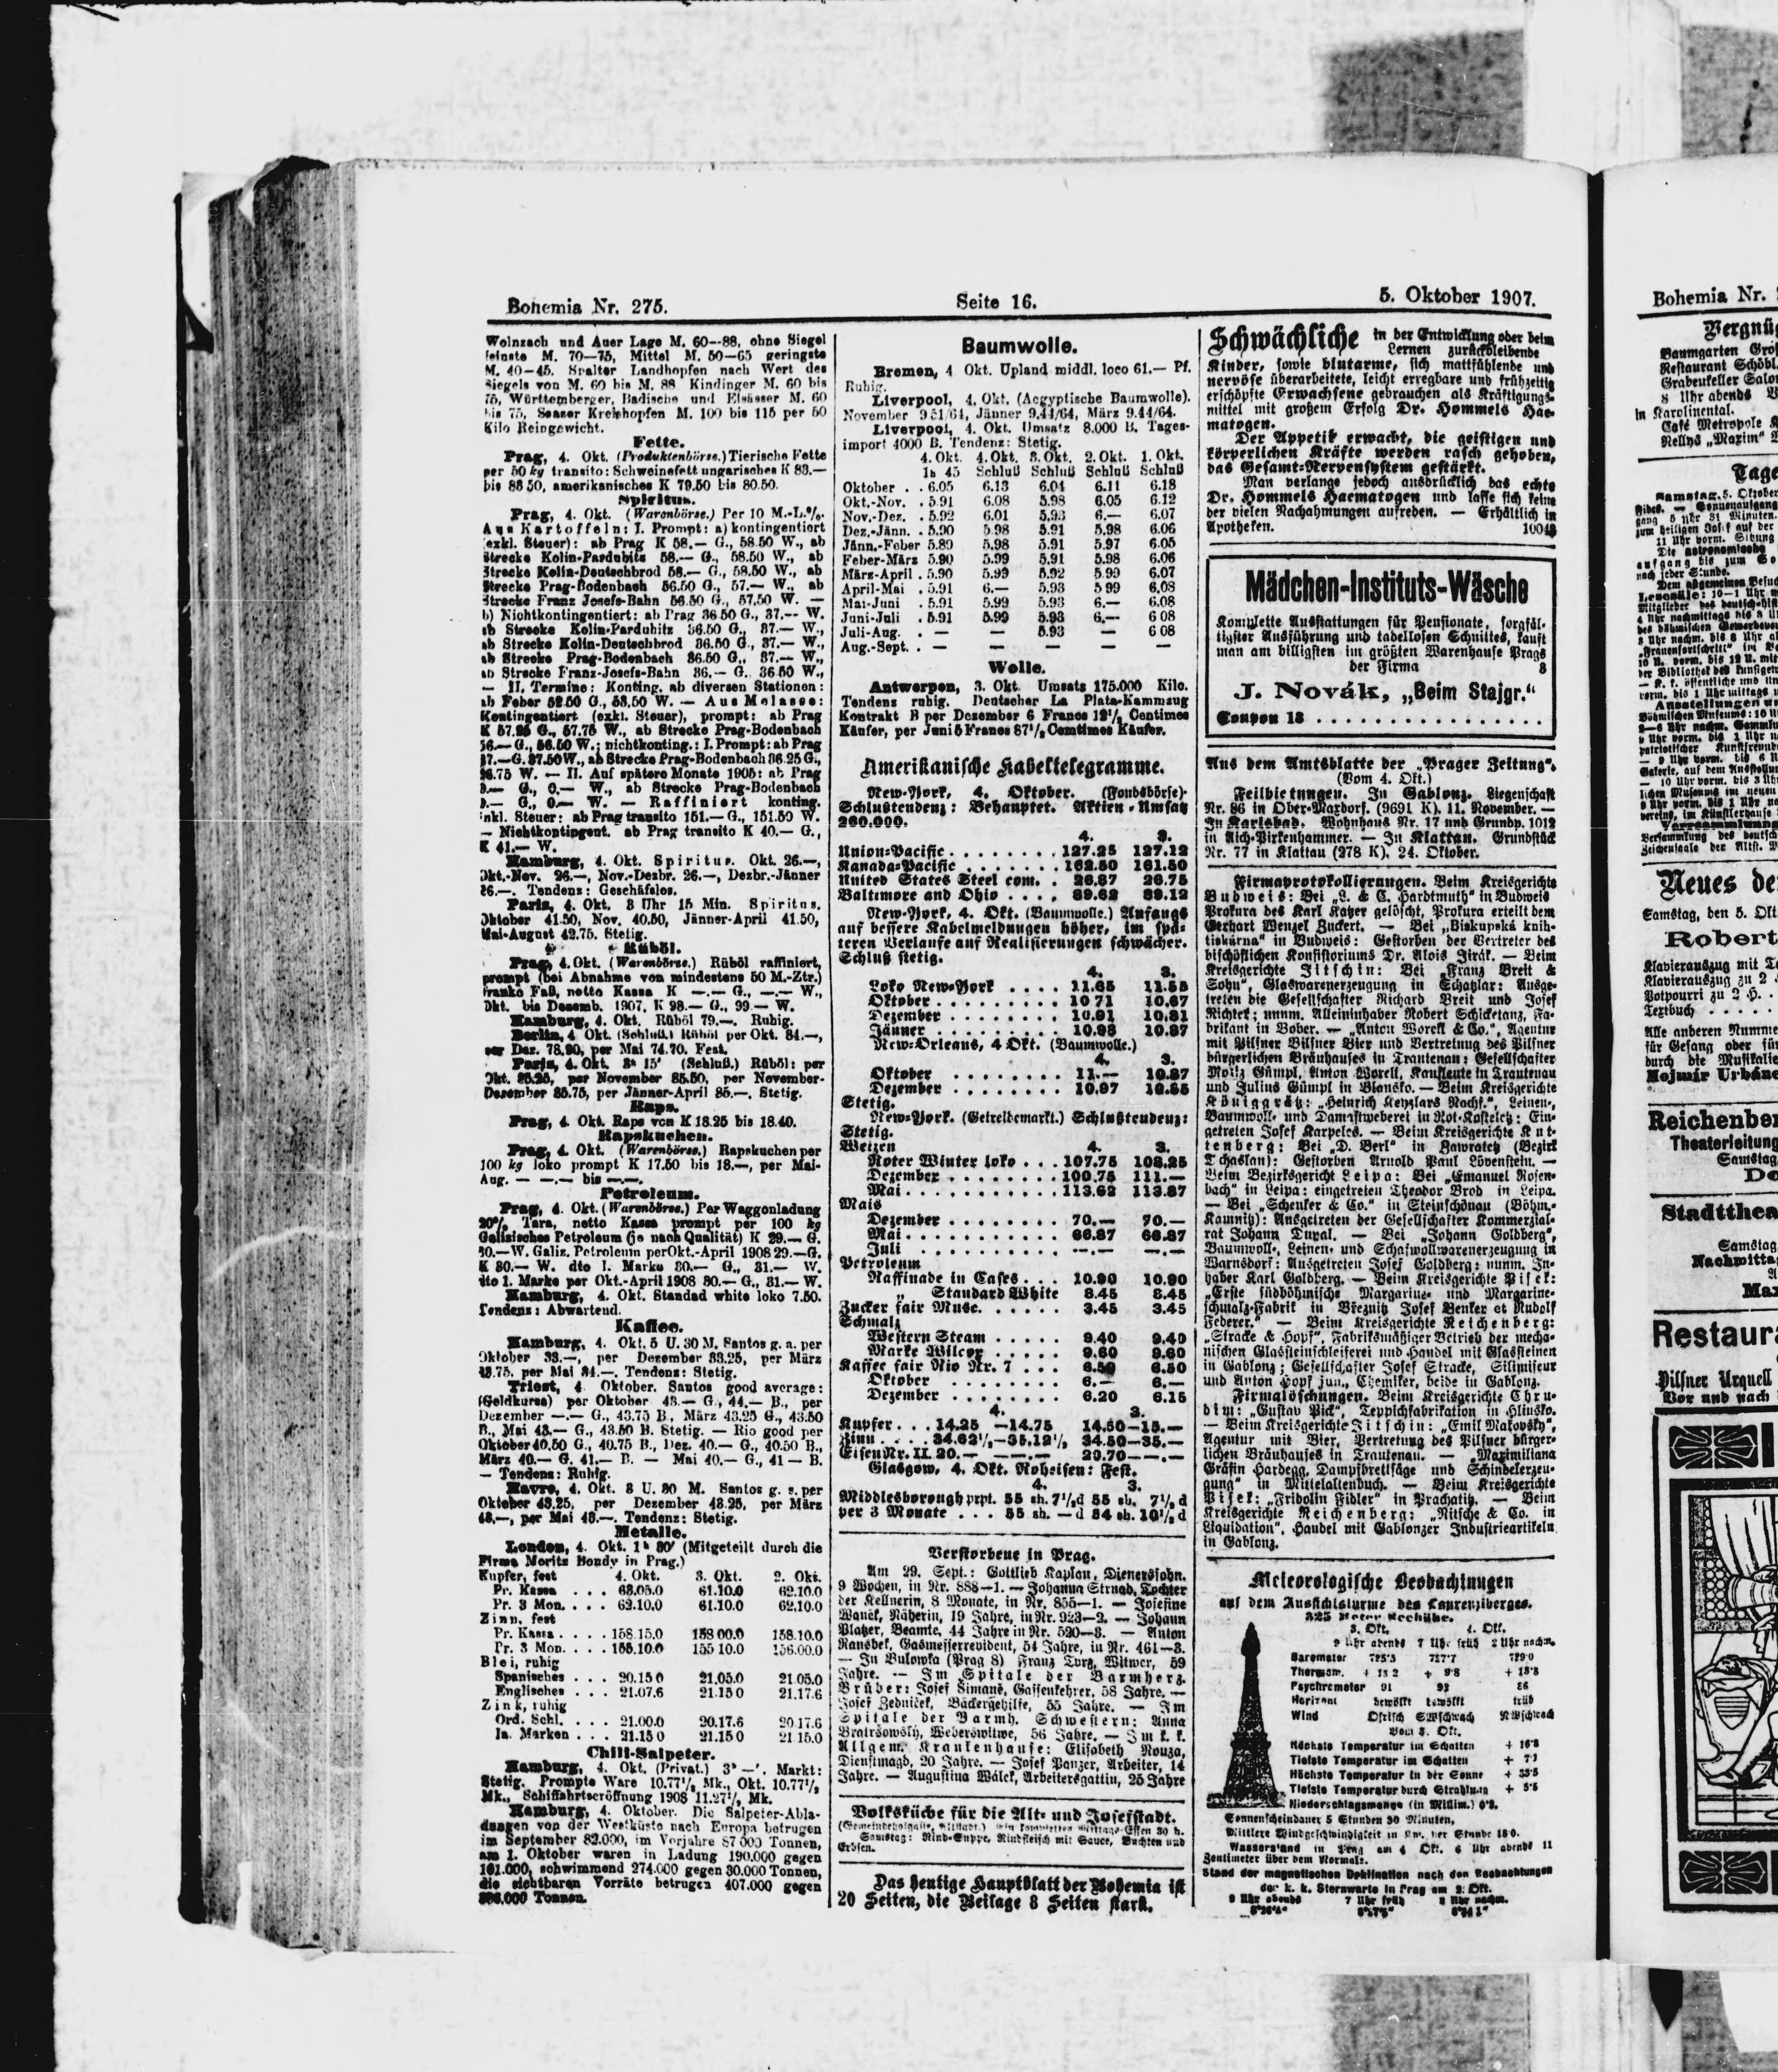 Bohemia Nr. 275.
Seite 16.
5. Oktober 1907.
Wolnzach und Auer Lage M. 60—88, ohne Siegel
feinste M. 70—75, Mittel M. 50—65 geringste
M. 40—45. Spalter Landhopfen nach Wert des
Siegels von M. 60 bis M. 88 Kindinger M. 60 bis
75, Württemberger, Badische und Elsässer M. 60
bis 75, Saazer Kreishopfen M. 100 bis 115 per 50
Kilo Reingewicht.
Fette.
Prag, 4. Okt. (Produktenbörse.) Tierische Fette
per 50 kg transito: Schweinefett ungarisches K 83.—
bis 83 50, amerikanisches K 79.50 bis 80.50.
Spiritus.
Prag, 4. Okt. (Warenbörse.) Per 10 M.-L.%.
Aus Kartoffeln: I. Prompt: a) kontingentiert
(exkl. Steuer): ab Prag K 58.— G., 58.50 W., ab
Strecke Kolin-Pardubitz 58.— G., 58.50 W., ab
Strecke Kolin-Deutschbrod 58.— G., 58.50 W., ab
Strecke Prag-Bodenbach 56.50 G., 57.— W., ab
Strecke Franz Josefs-Bahn 56.50 G., 57.50 W. —
b) Nichtkontingentiert: ab Prag 36 50 G., 37.— W.
ab Strecke Kolin-Pardubitz 36.50 G., 37.— W.,
ab Strecke Kolin-Deutschbrod 36.50 G., 37.— W.,
ab Strecke Prag-Bodenbach 36.50 G., 37.— W.,
ab Strecke Franz-Josefs-Bahn 36.— G. 36 50 W.,
— II. Termine: Konting. ab diversen Stationen:
ab Feber 52.50 G., 53.50 W. — Aus Melasse:
Kontingentiert (exkl. Steuer), prompt: ab Prag
K 57.25 G., 57.75 W., ab Strecke Prag-Bodenbach
56.— G., 56.50 W.; nichtkonting.: I. Prompt: ab Prag
37.—G. 37.50W., ab Strecke Prag-Bodenbach 36.25 G.,
36.75 W. — II. Auf spätere Monate 1908: ab Prag
0.— G., 0.— W., ab Strecke Prag-Bodenbach
0.— G., 0.— W. — Raffiniert konting.
inkl. Steuer: ab Prag transito 151.— G., 151.50 W.
— Nichtkontingent. ab Prag transito K 40.— G.,
K 41.— W.
Hamburg, 4. Okt. Spiritus. Okt. 26.—,
Okt.-Nov. 26.—, Nov.-Dezbr. 26.—, Dezbr.-Jänner
26.—. Tendenz: Geschäfslos.
Paris, 4. Okt. 3 Uhr 15 Min. Spiritus.
Oktober 41.50, Nov. 40.50, Jänner-April 41.50,
Mai-August 42.75. Stetig.
Rüböl.
Prag, 4. Okt. (Warenbörse.) Rüböl raffiniert,
prompt (bei Abnahme von mindestens 50 M.-Ztr.)
franko Faß, netto Kassa K —.— G., —.— W.,
Okt. bis Dezemb. 1907, K 98.— G., 99.— W.
Hamburg, 4. Okt. Rüböl 79.—. Ruhig.
Berlin, 4 Okt. (Schluß.) Rüböl per Okt. 84.—,
per Dez. 78.90, per Mai 74.70. Fest.
Paris, 4. Okt. 3h 15' (Schluß.) Rüböl: per
Okt. 85.25, per November 85.50, per November-
Dezember 85.75, per Jänner-April 85.—. Stetig.
Raps.
Prag, 4. Okt. Raps von K 18.25 bis 18.40.
Rapskuchen.
Prag, 4. Okt. (Warenbörse.) Rapskuchen per
100 kg loko prompt K 17.50 bis 18.—, per Mai-
Aug. — —.— bis —.—.
Petroleum.
Prag, 4. Okt. (Warenbörse.) Per Waggonladung
20% Tara, netto Kassa prompt per 100 kg
Galizisches Petroleum (je nach Qualität) K 29.— G.
30.—W. Galiz. Petroleum per Okt.-April 1908 29.—G.
K 30.— W. dto I. Marke 30.— G., 31.— W.
dto I. Marke per Okt.-April 1908 30.— G., 31.— W.
Hamburg, 4. Okt. Standad white loko 7.50.
Tendenz: Abwartend.
Kaffee.
Hamburg, 4. Okt. 5 U. 30 M. Santos g. a. per
Oktober 33.—, per Dezember 33.25, per März
33.75. per Mai 34.—. Tendenz: Stetig.
Triest, 4. Oktober. Santos good average:
(Geldkurse) per Oktober 43.— G., 44.— B., per
Dezember —.— G., 43.75 B., März 43.25 G., 43.50
B., Mai 43.— G., 43.50 B. Stetig. — Rio good per
Oktober 40.50 G., 40.75 B., Dez. 40.— G., 40.50 B.,
März 40.— G. 41.— B. — Mai 40.— G., 41 — B.
— Tendenz: Ruhig.
Havre, 4. Okt. 8 U. 30 M. Santos g. a. per
Oktober 43.25, per Dezember 43.25, per März
43.—, per Mai 43.—. Tendenz: Stetig.
Metalle.
London, 4. Okt. 1h 30' (Mitgeteilt durch die
Firma Moritz Bondy in Prag.)
Kupfer, fest 4. Okt. 3. Okt. 2. Okt.
Pr. Kassa . . . 63.05.0 61.10.0 62.10.0
Pr. 3 Mon. . . . 62.10.0 61.10.0 62.10.0
Zinn, fest
Pr. Kassa . . . . 158.15.0 158 00.0 158.10.0
Pr. 3 Mon. . . . 155.10.0 155 10.0 156.00.0
Blei, ruhig
Spanisches . . . 20.15 0 21.05.0 21.05.0
Englisches . . . 21.07.6 21.15 0 21.17.6
Zink, ruhig
Ord. Schl. . . . . 21.00.0 20.17.6 20 17.6
Ia. Marken . . . 21.15 0 21.15 0 21 15.0
Chili-Salpeter.
Hamburg, 4. Okt. (Privat.) 3h —'. Markt:
Stetig. Prompte Ware 10.77½ Mk., Okt. 10.77½
Mk., Schiffahrtseröffnung 1908 11.27½ Mk.
Hamburg, 4. Oktober. Die Salpeter-Abla-
dungen von der Westküste nach Europa betrugen
im September 82.000, im Vorjahre 87 000 Tonnen,
am 1. Oktober waren in Ladung 190.000 gegen
161.000, schwimmend 274.000 gegen 30.000 Tonnen,
die sichtbaren Vorräte betrugen 407.000 gegen
Tonnen.
Baumwolle.
Bremen, 4 Okt. Upland middl. loco 61.— Pf.
Ruhig.
Liverpool, 4. Okt. (Aegyptische Baumwolle).
November 9 51/64, Jänner 9.44/64, März 9.44/64.
Liverpool, 4. Okt. Umsatz 8.000 B. Tages-
import 4000 B. Tendenz: Stetig.
4. Okt. 4. Okt. 3. Okt. 2. Okt. 1. Okt.
1h 45 Schluß Schluß Schluß Schluß
Oktober . . 6.05 6.13 6.04 6.11 6.18
Okt.-Nov. . 5.91 6.08 5.98 6.05 6.12
Nov.-Dez. . 5.92 6.01 5.93 6.— 6.07
Dez.-Jänn. . 5.90 5 98 5.91 5.98 6.06
Jänn.-Feber 5.89 5.98 5.91 5.97 6.05
Feber-März 5.90 5.99 5.91 5.98 6.06
März-April . 5.90 5.99 5.92 5 99 6.07
April-Mai . 5.91 6.— 5.93 5 99 6.08
Mai-Juni . 5.91 5.99 5.93 6.— 6.08
Juni-Juli . 5.91 5.99 5.93 6.— 6 08
Juli-Aug. . — — 5.93 — 6 08
Aug.-Sept. . — — — — —
Wolle.
Antwerpen, 3. Okt. Umsatz 175.000 Kilo.
Tendenz ruhig. Deutscher La Plata-Kammzug
Kontrakt B per Dezember 6 Francs 12½ Centimes
Käufer, per Juni 5 Francs 87½ Centimes Käufer.
Amerikanische Kabeltelegramme.
New-York, 4. Oktober. (Fondsbörse)-
Schlußtendenz: Behauptet. Aktien-Umsatz
260.000.
4. 3.
Union-Pacific . . . . . . . . 127.25 127.12
Kanada-Pacific . . . . . . . 162.50 161.50
United States Steel com. . . 26.87 26.75
Baltimore and Ohio . . . . 89.62 89.12
New-York, 4. Okt. (Baumwolle.) Anfangs
auf bessere Kabelmeldungen höher, im spä-
teren Verlaufe auf Realisierungen schwächer.
Schluß stetig.
4. 3.
Loko New-York . . . . 11.65 11.55
Oktober . . . . . . . . . 10 71 10.67
Dezember . . . . . . . . 10.91 10.81
Jänner . . . . . . . . . 10.98 10.87
New-Orleans, 4 Okt. (Baumwolle.)
4. 3.
Oktober . . . . . . . . 11.— 10.87
Dezember . . . . . . . 10.97 10.85
Stetig.
New-York. (Getreidemarkt.) Schlußtendenz:
Stetig.
Weizen 4. 3.
Roter Winter loko . . . 107.75 108.25
Dezember . . . . . . . . . 100.75 111.—
Mai . . . . . . . . . . . 113.62 113.87
Mais
Dezember . . . . . . . . 70.— 70.—
Mai . . . . . . . . . . . 66.87 66.87
Juli . . . . . . . . . . —.— —.—
Petroleum
Raffinade in Cases . . . 10.90 10.90
„ Standard White 8.45 8.45
Zucker fair Musc. . . . . . 3.45 3.45
Schmalz
Western Steam . . . . . 9.40 9.40
Marke Wilcox . . . . . 9.60 9.60
Kaffee fair Rio Nr. 7 . . . 6.50 6.50
Oktober . . . . . . . 6.— 6.—
Dezember . . . . . . . 6.20 6.15
4. 3.
Kupfer . . . 14.25 —14.75 14.50—15.—
Zinn . . . . 34.62½—35.12½ 34.50—35.—
Eisen Nr. II. 20.— —.— 20.70—.—
Glasgow, 4. Okt. Roheisen: Fest.
4. 3.
Middlesborough prpt. 55 sh. 7½d 55 sh. 7½d
per 3 Monate . . . 55 sh. — d 54 sh. 10½d
Verstorbene in Prag.
Am 29. Sept.: Gottlieb Kaplan, Dienerssohn.
9 Wochen, in Nr. 888—1. — Johanna Strnad, Tochter
der Kellnerin, 8 Monate, in Nr. 855—1. — Josefine
Wanek, Näherin, 19 Jahre, in Nr. 923—2. — Johann
Platzer, Beamte, 44 Jahre in Nr. 520—3. — Anton
Ransbek, Gasmesserrevident, 54 Jahre, in Nr. 461—3.
— In Bulowka (Prag 8) Franz Tvrz, Witwer, 59
Jahre. — Im Spitale der Barmherz.
Brüder: Josef Simané, Gassenkehrer, 58 Jahre. —
Josef Zedniček, Bäckergehilfe, 55 Jahre. — Im
Spitale der Barmh. Schwestern: Anna
Bratršowsky, Weberswitwe, 56 Jahre. — Im k. k.
Allgem. Krankenhause: Elisabeth Rouza,
Dienstmagd, 20 Jahre. — Josef Panzer, Arbeiter, 14
Jahre. — Augustina Válek, Arbeitersgattin, 25 Jahre
Volksküche für die Alt- und Josefstadt.
Samstag: Rind-Suppe, Rindfleisch mit Sauce, Buchten und
Erbsen.
Das heutige Hauptblatt der Bohemia ist
20 Seiten, die Beilage 8 Seiten stark.
Schwächliche in der Entwicklung oder beim
Lernen zurückbleibende
Kinder, sowie blutarme, sich mattfühlende und
nervöse überarbeitete, leicht erregbare und frühzeitig
erschöpfte Erwachsene gebrauchen als Kräftigungs-
mittel mit großem Erfolg Dr. Hommels Hae-
matogen.
Der Appetit erwacht, die geistigen und
körperlichen Kräfte werden rasch gehoben,
das Gesamt-Nervensystem gestärkt.
Man verlange jedoch ausdrücklich das echte
Dr. Hommels Haematogen und lasse sich keine
der vielen Nachahmungen aufreden. — Erhältlich in
Apotheken. 10048
Mädchen-Instituts-Wäsche
Komplette Ausstattungen für Pensionate, sorgfäl-
tigster Ausführung und tadellosen Schnittes, kauft
man am billigsten im größten Warenhause Prags
der Firma 8
J. Novák, „Beim Stajgr.“
Coupon 18 . . . . . . . . . . . . . . . .
Aus dem Amtsblatte der „Prager Zeitung“.
(Vom 4. Okt.)
Feilbietungen. In Gablonz. Liegenschaft
Nr. 86 in Ober-Maxdorf. (9691 K). 11. November. —
In Karlsbad. Wohnhaus Nr. 17 und Grundp. 1012
in Aich-Pirkenhammer. — In Klattau. Grundstück
Nr. 77 in Klattau (278 K). 24. Oktober.
Firmaprotokollierungen. Beim Kreisgerichte
Budweis: Bei „L. & C. Hardtmuth“ in Budweis
Prokura des Karl Katzer gelöscht, Prokura erteilt dem
Gerhart Wenzel Zuckert. — Bei „Biskupská knih-
tiskárna“ in Budweis: Gestorben der Vertreter des
bischöflichen Konsistoriums Dr. Alois Jirák. — Beim
Kreisgerichte Jitschin: Bei „Franz Breit &
Sohn“, Glaswarenerzeugung in Schatzlar: Ausge-
treten die Gesellschafter Richard Breit und Josef
Richter; nunm. Alleininhaber Robert Schicketanz, Fa-
brikant in Bober. — „Anton Worell & Co.“, Agentur
mit Pilsner Pilsner Bier und Vertretung des Pilsner
bürgerlichen Bräuhauses in Trautenau: Gesellschafter
Moitz Gümpl, Anton Worell, Kaufleute in Trautenau
und Julius Gümpl in Blansko. — Beim Kreisgerichte
Königgrätz: „Heinrich Keyzlars Nachf.“, Leinen-,
Baumwoll- und Damastweberei in Rot-Kosteletz: Ein-
getreten Josef Karpeles. — Beim Kreisgerichte Kut-
tenberg: Bei „D. Berl“ in Zawratetz (Bezirk
Tschaslau): Gestorben Arnold Paul Lövenstein. —
Beim Bezirksgericht Leipa: Bei „Emanuel Rosen-
bach“ in Leipa: eingetreten Theodor Brod in Leipa.
— Bei „Schenker & Co.“ in Steinschönau (Böhm.-
Kamnitz): Ausgetreten der Gesellschafter Kommerzial-
rat Johann Duxal. — Bei „Johann Goldberg“,
Baumwoll-, Leinen- und Schafwollwarenerzeugung in
Warnsdorf: Ausgetreten Josef Goldberg; nunm. In-
haber Karl Goldberg. — Beim Kreisgerichte Pisek:
„Erste südböhmische Margarine- und Margarine-
schmalz-Fabrik in Březnitz Josef Benker et Rudolf
Federer.“ — Beim Kreisgerichte Reichenberg:
„Stracke & Hopf“, Fabriksmäßiger Betrieb der mecha-
nischen Glassteinschleiferei und Handel mit Glassteinen
in Gablonz; Gesellschafter Josef Stracke, Silimiseur
und Anton Hopf jun., Chemiker, beide in Gablonz.
Firmalöschungen. Beim Kreisgerichte Chru-
dim: „Gustav Pick“, Teppichfabrikation in Hlinsko.
— Beim Kreisgerichte Jitschin: „Emil Makovsky“,
Agentur mit Bier, Vertretung des Pilsner bürger-
lichen Bräuhauses in Trautenau. — „Maximiliana
Gräfin Hardegg, Dampfbrettsäge und Schindelerzeu-
gung“ in Mittelaltenbuch. — Beim Kreisgerichte
Pisek: „Fridolin Fidler“ in Prachatitz. — Beim
Kreisgerichte Reichenberg: „Nitsche & Co. in
Liquidation“, Handel mit Gablonzer Industrieartikeln
in Gablonz.
Meteorologische Beobachtungen
auf dem Aussichtsturme des Laurenziberges.
325 Meter Seehöhe.
3. Okt. 4. Okt.
9 Uhr abends 7 Uhr früh 2 Uhr nachm.
Barometer 725'3 727'7 729'0
Thermom. + 13 2 + 9'8 + 13'8
Psychrometer 91 93 86
Horizont bewölkt bewölkt trüb
Wind
Vom 3. Okt.
Höchste Temperatur im Schatten + 16'8
Tiefste Temperatur im Schatten + 7'3
Höchste Temperatur in der Sonne + 33'5
Tiefste Temperatur durch Strahlung + 5'5
Niederschlagsmenge (in Millim.) 0'2.
Sonnenscheindauer 5 Stunden 30 Minuten,
Mittlere Windgeschwindigkeit in Km. per Stunde 18 0.
Wasserstand in Prag am 4 Okt. 6 Uhr abends 11
Zentimeter über dem Normale.
Stand der magnetischen Deklination nach den Beobachtungen
der k. k. Sternwarte in Prag am 3. Okt.
9 Uhr abends 7 Uhr früh 2 Uhr nachm.
Bohemia Nr.
Vergnü
Baumgarten
Restaurant Schöbl
Grabenkeller
8 Uhr abends
in Karolinental.
Café Metropole
Nellys „Maxim“
Tage
Samstag, 5. Oktober
Neues de
Samstag, den 5. Okt
Robert
Klavierauszug mit
Klavierauszug zu 2
Potpourri zu 2 H. .
Textbuch . . . .
Alle anderen Numme
für Gesang oder für
durch die Musikalie
Mojmír Urbáne
Reichenber
Theaterleitung
Samstag,
De
Stadtthea
Samstag
Nachmitta
Ma
Restaur
Pilsner Urquell
Vor und nach